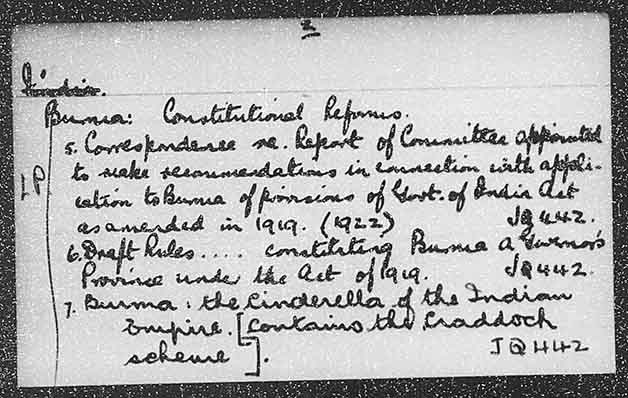 2
India.
Burma: Constitutional Reforms.
IP
5. Correspondence re. Report of Committee appointed
to make recommendations in connection with appli-
cation to Burma of provisions of Govt. of India Act
as amended in 1919. (1922) JQ442.
6. Draft Rules.... constituting Burma a Governor's
Province under the Act of 1919. JQ442.
7. Burma: the Cinderella of the Indian
Empire. [Contains the Craddock
scheme]. JQ442